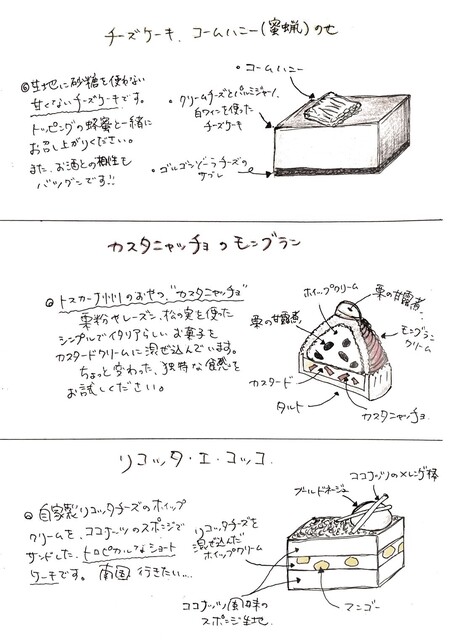 チーズケーキ、コームハニー(蜜蝋)のせ
◎生地に砂糖を使わない
甘くないチーズケーキです。
トッピングの蜂蜜と一緒に
お召し上がりください。
また、お酒との相性も
バツグンです!!
・コームハニー
・クリームチーズとパルミジャーノ、
白ワインを使った
チーズケーキ
・ゴルゴンゾーラチーズの
サブレ
カスタニャッチョのモンブラン
◎トスカーナ州のおやつ、"カスタニャッチョ"
栗粉やレーズン、松の実を使った
シンプルでイタリアらしいお菓子を
カスタードクリームに混ぜ込んでいます。
ちょっと変わった、独特な食感を
お試しください。
ホイップクリーム
栗の甘露煮
栗の甘露煮
モンブラン
クリーム
カスタード
タルト
カスタニャッチョ
リコッタ・エ・コッコ
◎自家製リコッタチーズのホイップ
クリームを、ココナッツのスポンジで
サンドした、トロピカルなショート
ケーキです。南国行きたい…
ココナッツのメレンゲ棒
ブールドネージュ
リコッタチーズを
混ぜ込んだ
ホイップクリーム
ココナッツ風味の
スポンジ生地
マンゴー